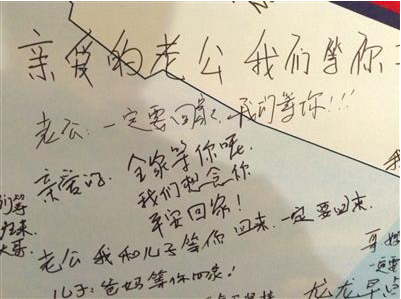 亲爱的老公 我们等你
老公:一定要回家,我们等你!!!
亲爱的:全家等你呢
我们想念你
平安回家!
老公 我和儿子等你 回来,一定要回来.
儿子:爸妈等你回家!
们等
归来
大哥.
一定要
龙龙早点